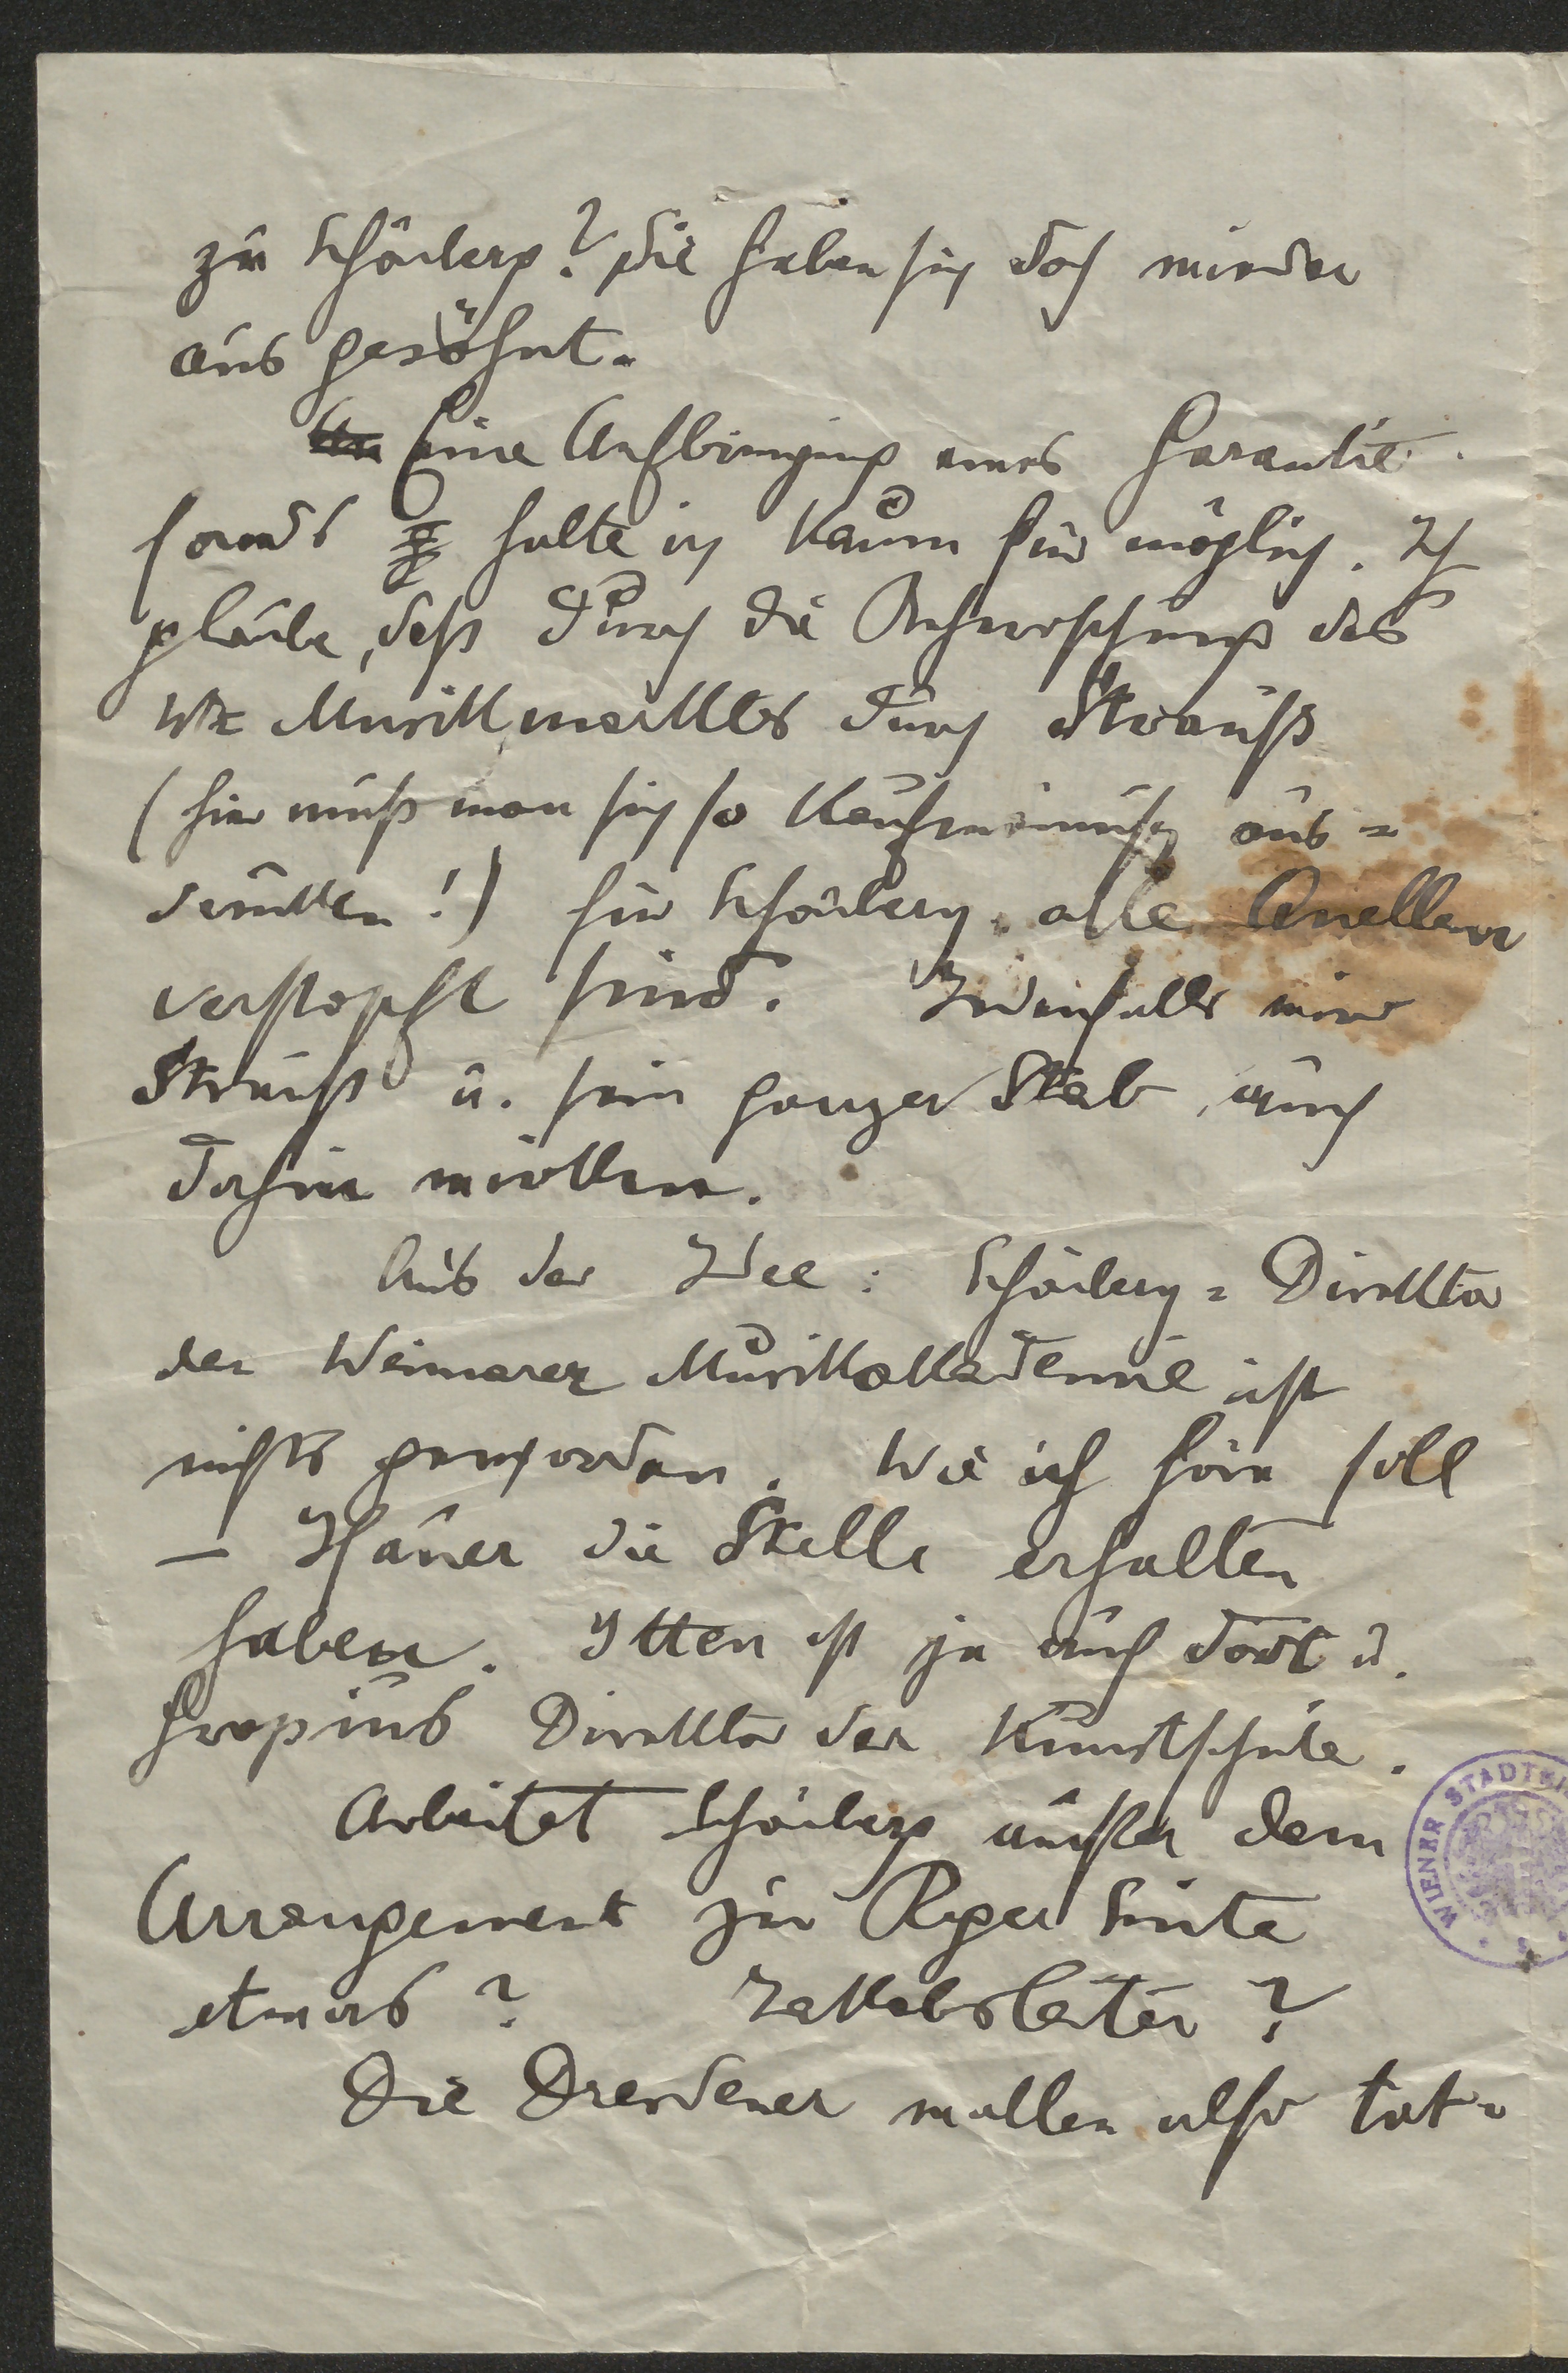 zu Schönberg? Sie haben sich doch wieder
aus gesöhnt.
Eine Aufbringung eines Garantie-
fonds halte ich kaum für möglich. Ich
glaube, daß durch die Beherrschung des
Musikmarktes durch Strauß
(hier muß man sich so kaufmännisch aus=
drücken!) für Schönberg alle Quellen
verstopft sind. Jedenfalls wird
Strauß u. sein ganzer Stab auch
dahin wirken.
Aus der Idee: Schönberg = Direktor
der Weimarer Musikakademie ist
nichts geworden. Wie ich höre soll
— Hauer die Stelle erhalten
haben. Itten ist ja auch dort u.
Gropius Direktor der Kunstschule.
Arbeitet Schönberg außer dem
Arrangement zur Reger Suite
etwas? Jakobsleiter?
Die Dresdener wollen also tat=
WIENER STADTBI